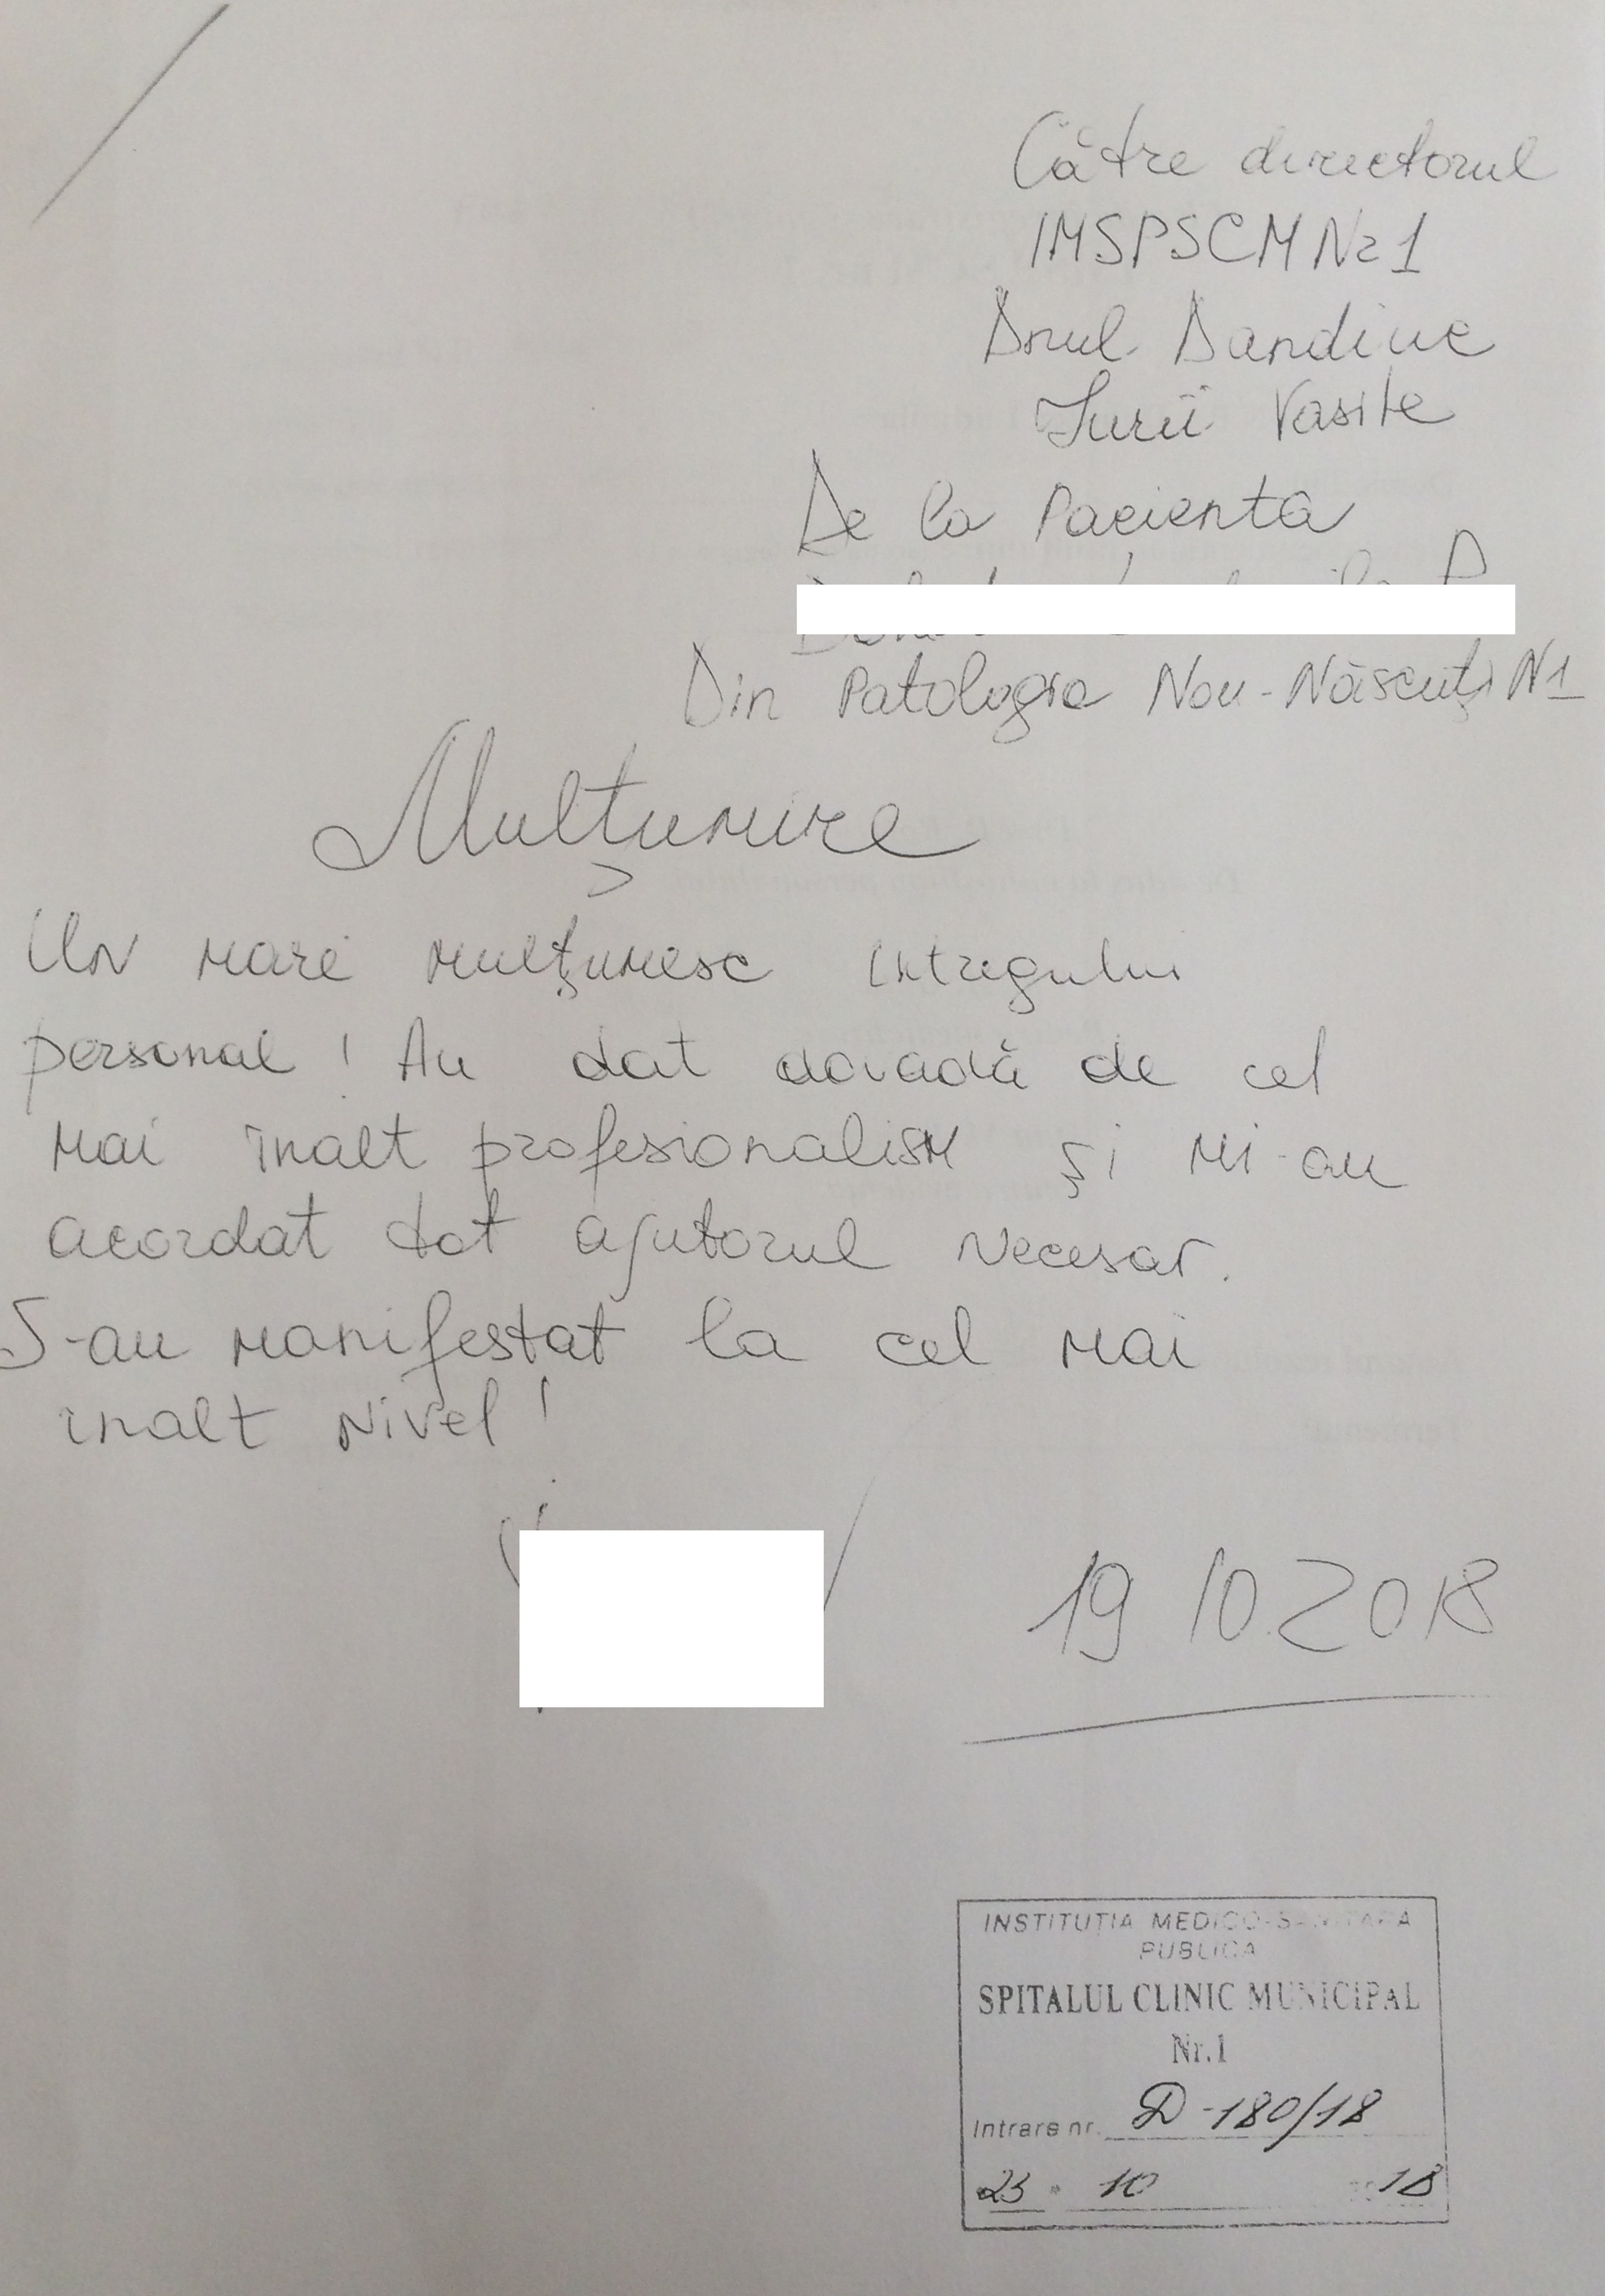 Către directorul
IMSPSCM Nr 1
Dnul Dandiuc
Iurii Vasile
De la Pacienta
Din Patologia Nou-Născuți N1
Mulțumire
Un mare mulțumesc intregului
personal! Au dat dovadă de cel
mai înalt profesionalism și mi-au
acordat tot ajutorul necesar.
S-au manifestat la cel mai
inalt nivel!
19 10.2018
INSTITUȚIA MEDICO-SANITARA
PUBLICA
SPITALUL CLINIC MUNICIPAL
Nr.1
Intrare nr. D-180/18
23 " 10 18